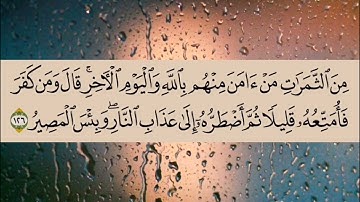 مِنَ ٱلثَّمَرَٰتِ مَنْ ءَامَنَ مِنْهُم بِٱللَّهِ وَٱلْيَوْمِ ٱلْـَٔاخِرِ ۖ قَالَ وَمَن كَفَرَ
فَأُمَتِّعُهُۥ قَلِيلًا ثُمَّ أَضْطَرُّهُۥٓ إِلَىٰ عَذَابِ ٱلنَّارِ ۖ وَبِئْسَ ٱلْمَصِيرُ ١٢٦